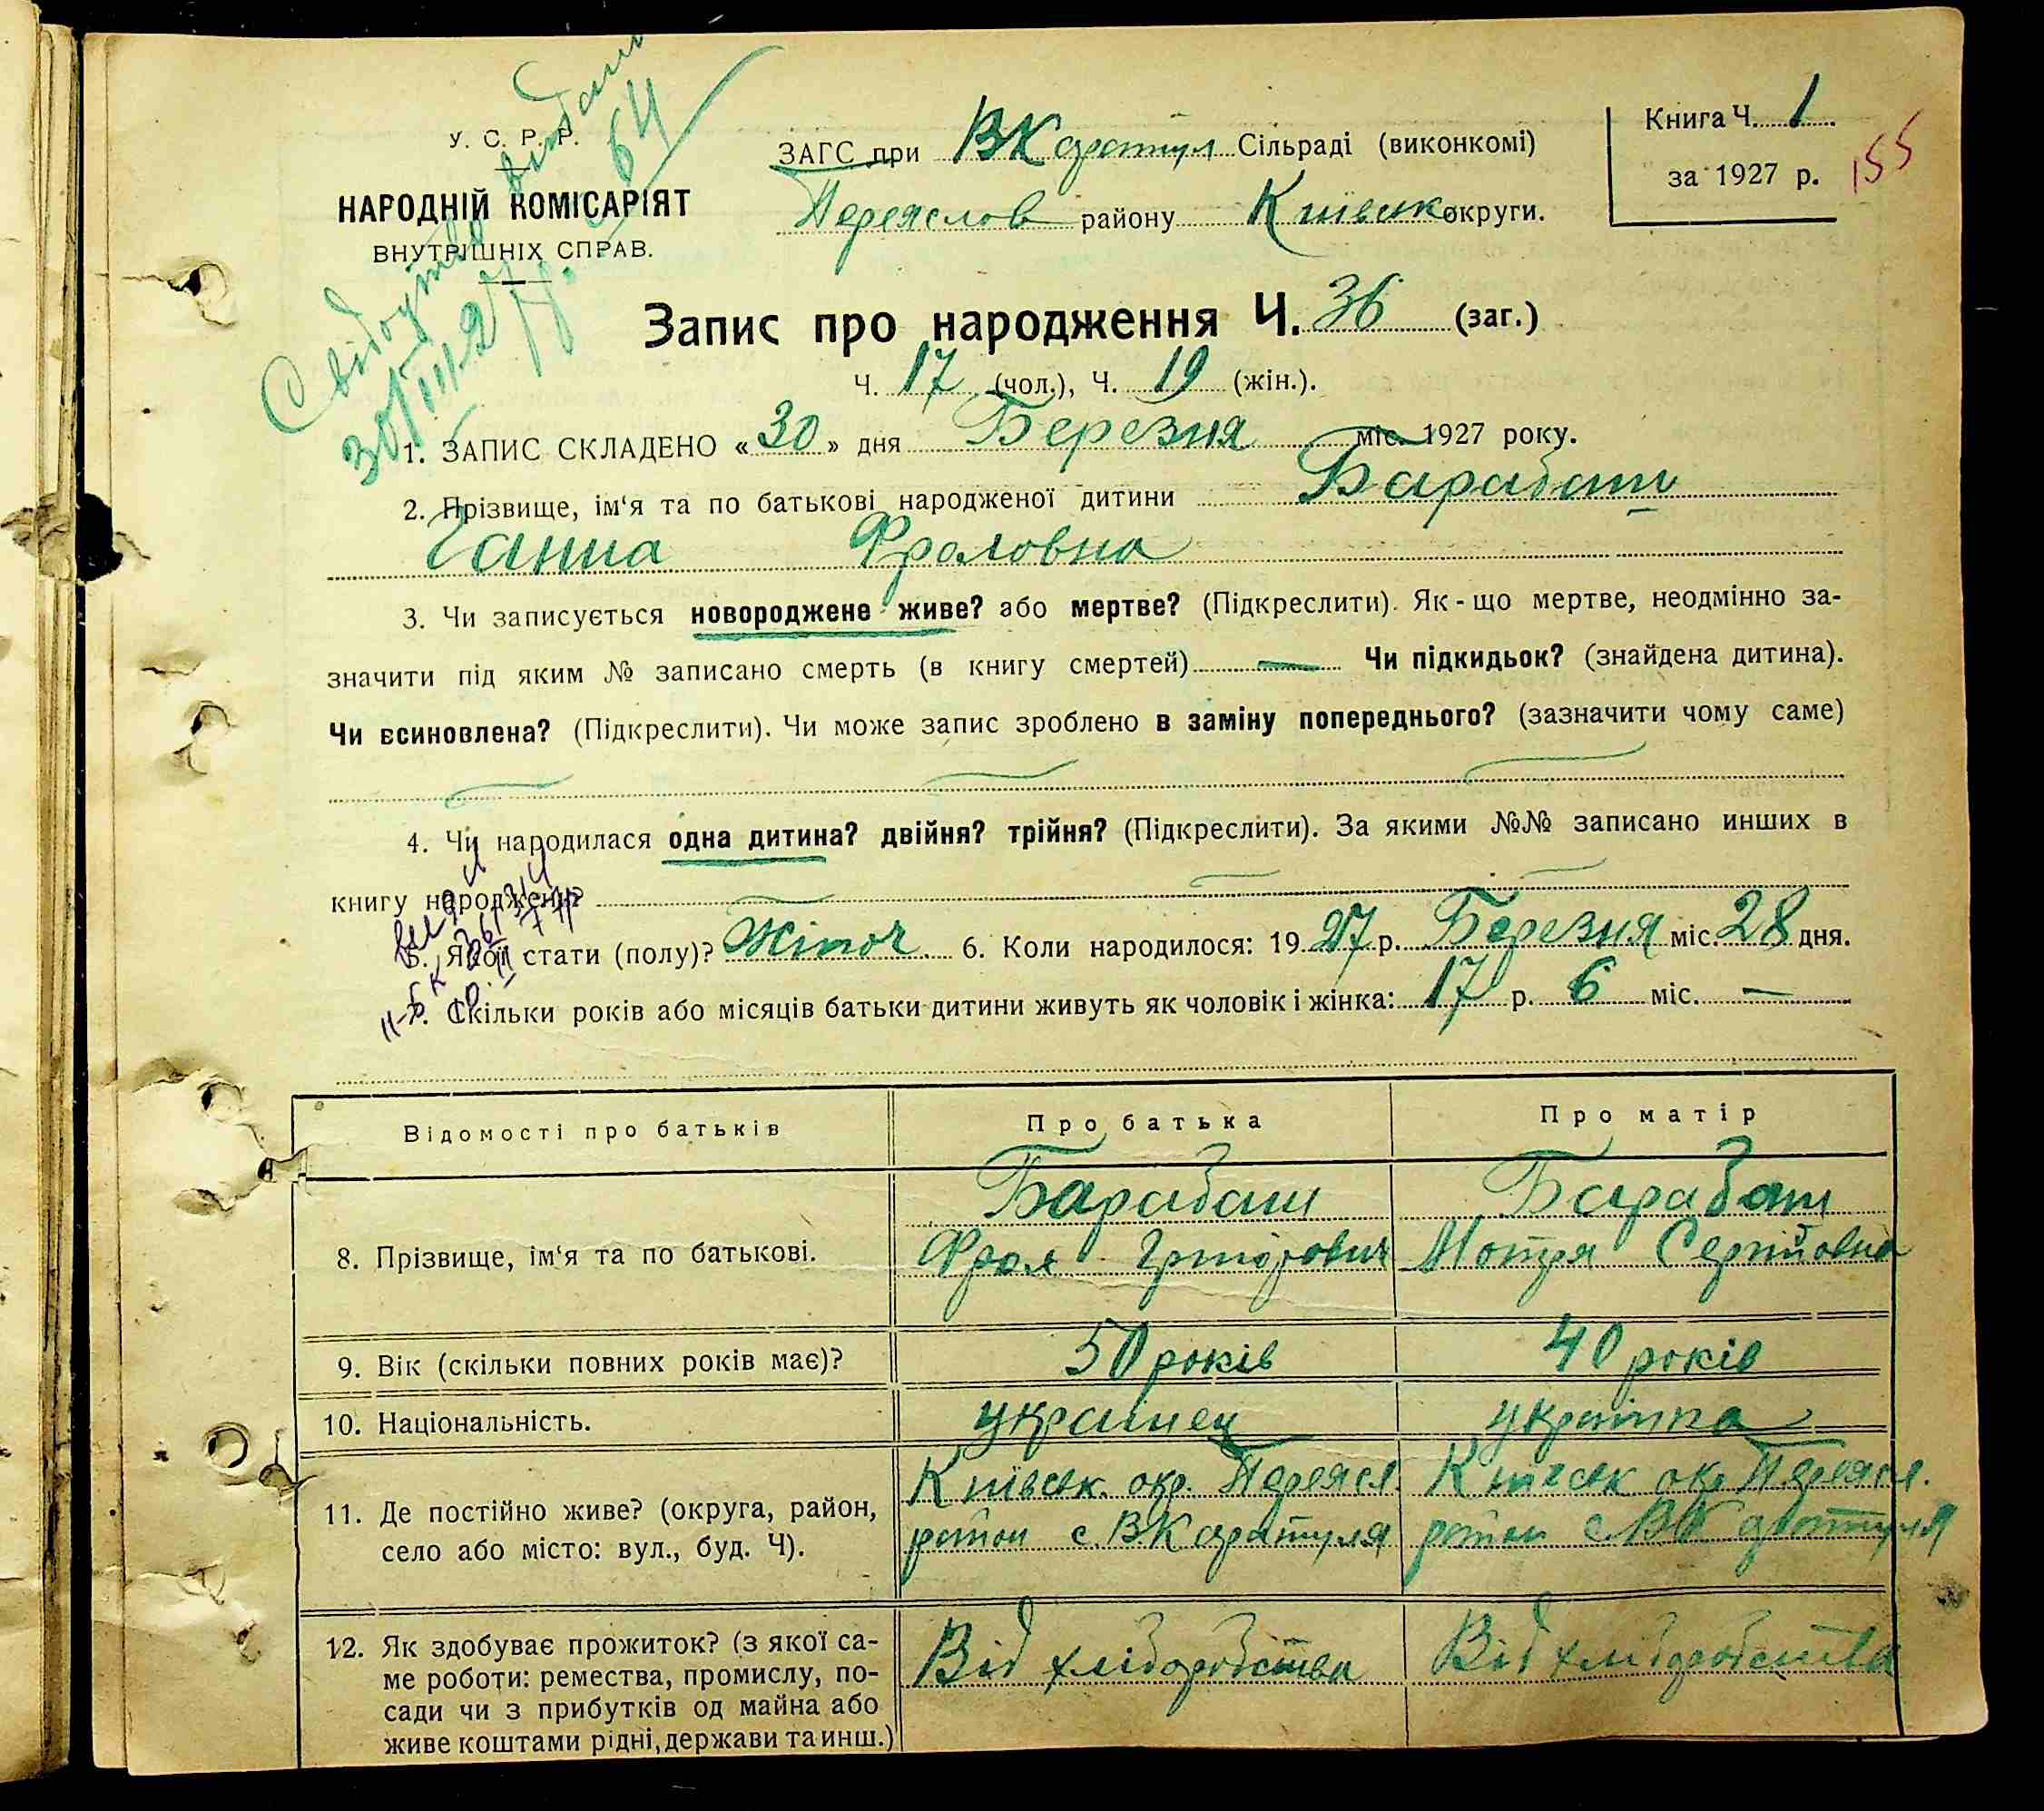 У. С. Р. Р.
НАРОДНІЙ КОМІСАРІЯТ
ВНУТРІШНІХ СПРАВ.
Свідоцтво видано 64
30/III 27 р.
ЗАГС при ВКаратул Сільраді (виконкомі)
Переяслов району Київськ округи.
Книга Ч. 1
за 1927 р.
155
Запис про народження Ч. 36 (заг.)
Ч. 17 (чол.), Ч. 19 (жін.).
1. ЗАПИС СКЛАДЕНО «30» дня Березня міс. 1927 року.
2. Прізвище, ім‘я та по батькові народженої дитини Барабаш
Ганна Фроловна
3. Чи записується новороджене живе? або мертве? (Підкреслити). Як-що мертве, неодмінно за-
значити під яким № записано смерть (в книгу смертей) — Чи підкидьок? (знайдена дитина).
Чи всиновлена? (Підкреслити). Чи може запис зроблено в заміну попереднього? (зазначити чому саме)
4. Чи народилася одна дитина? двійня? трійня? (Підкреслити). За якими №№ записано инших в
книгу народжень
5. Якої стати (полу)? Жіноч 6. Коли народилося: 1927 р. Березня міс. 28 дня.
7. Скільки років або місяців батьки дитини живуть як чоловік і жінка: 17 р. 6 міс. —
Відомості про батьків Про батька Про матір
8. Прізвище, ім‘я та по батькові. Барабаш Барабаш
Фрол Григорович Мотря Сергійовна
9. Вік (скільки повних років має)? 50 років 40 років
10. Національність. українец українка
11. Де постійно живе? (округа, район, Київськ. окр. Переясл. Київськ окр Переясл.
село або місто: вул., буд. Ч). район с. ВКаратуля район с ВКаратуля
12. Як здобуває прожиток? (з якої са- Від хліборобства Від хліборобства
ме роботи: ремества, промислу, по-
сади чи з прибутків од майна або
живе коштами рідні, держави та инш.)